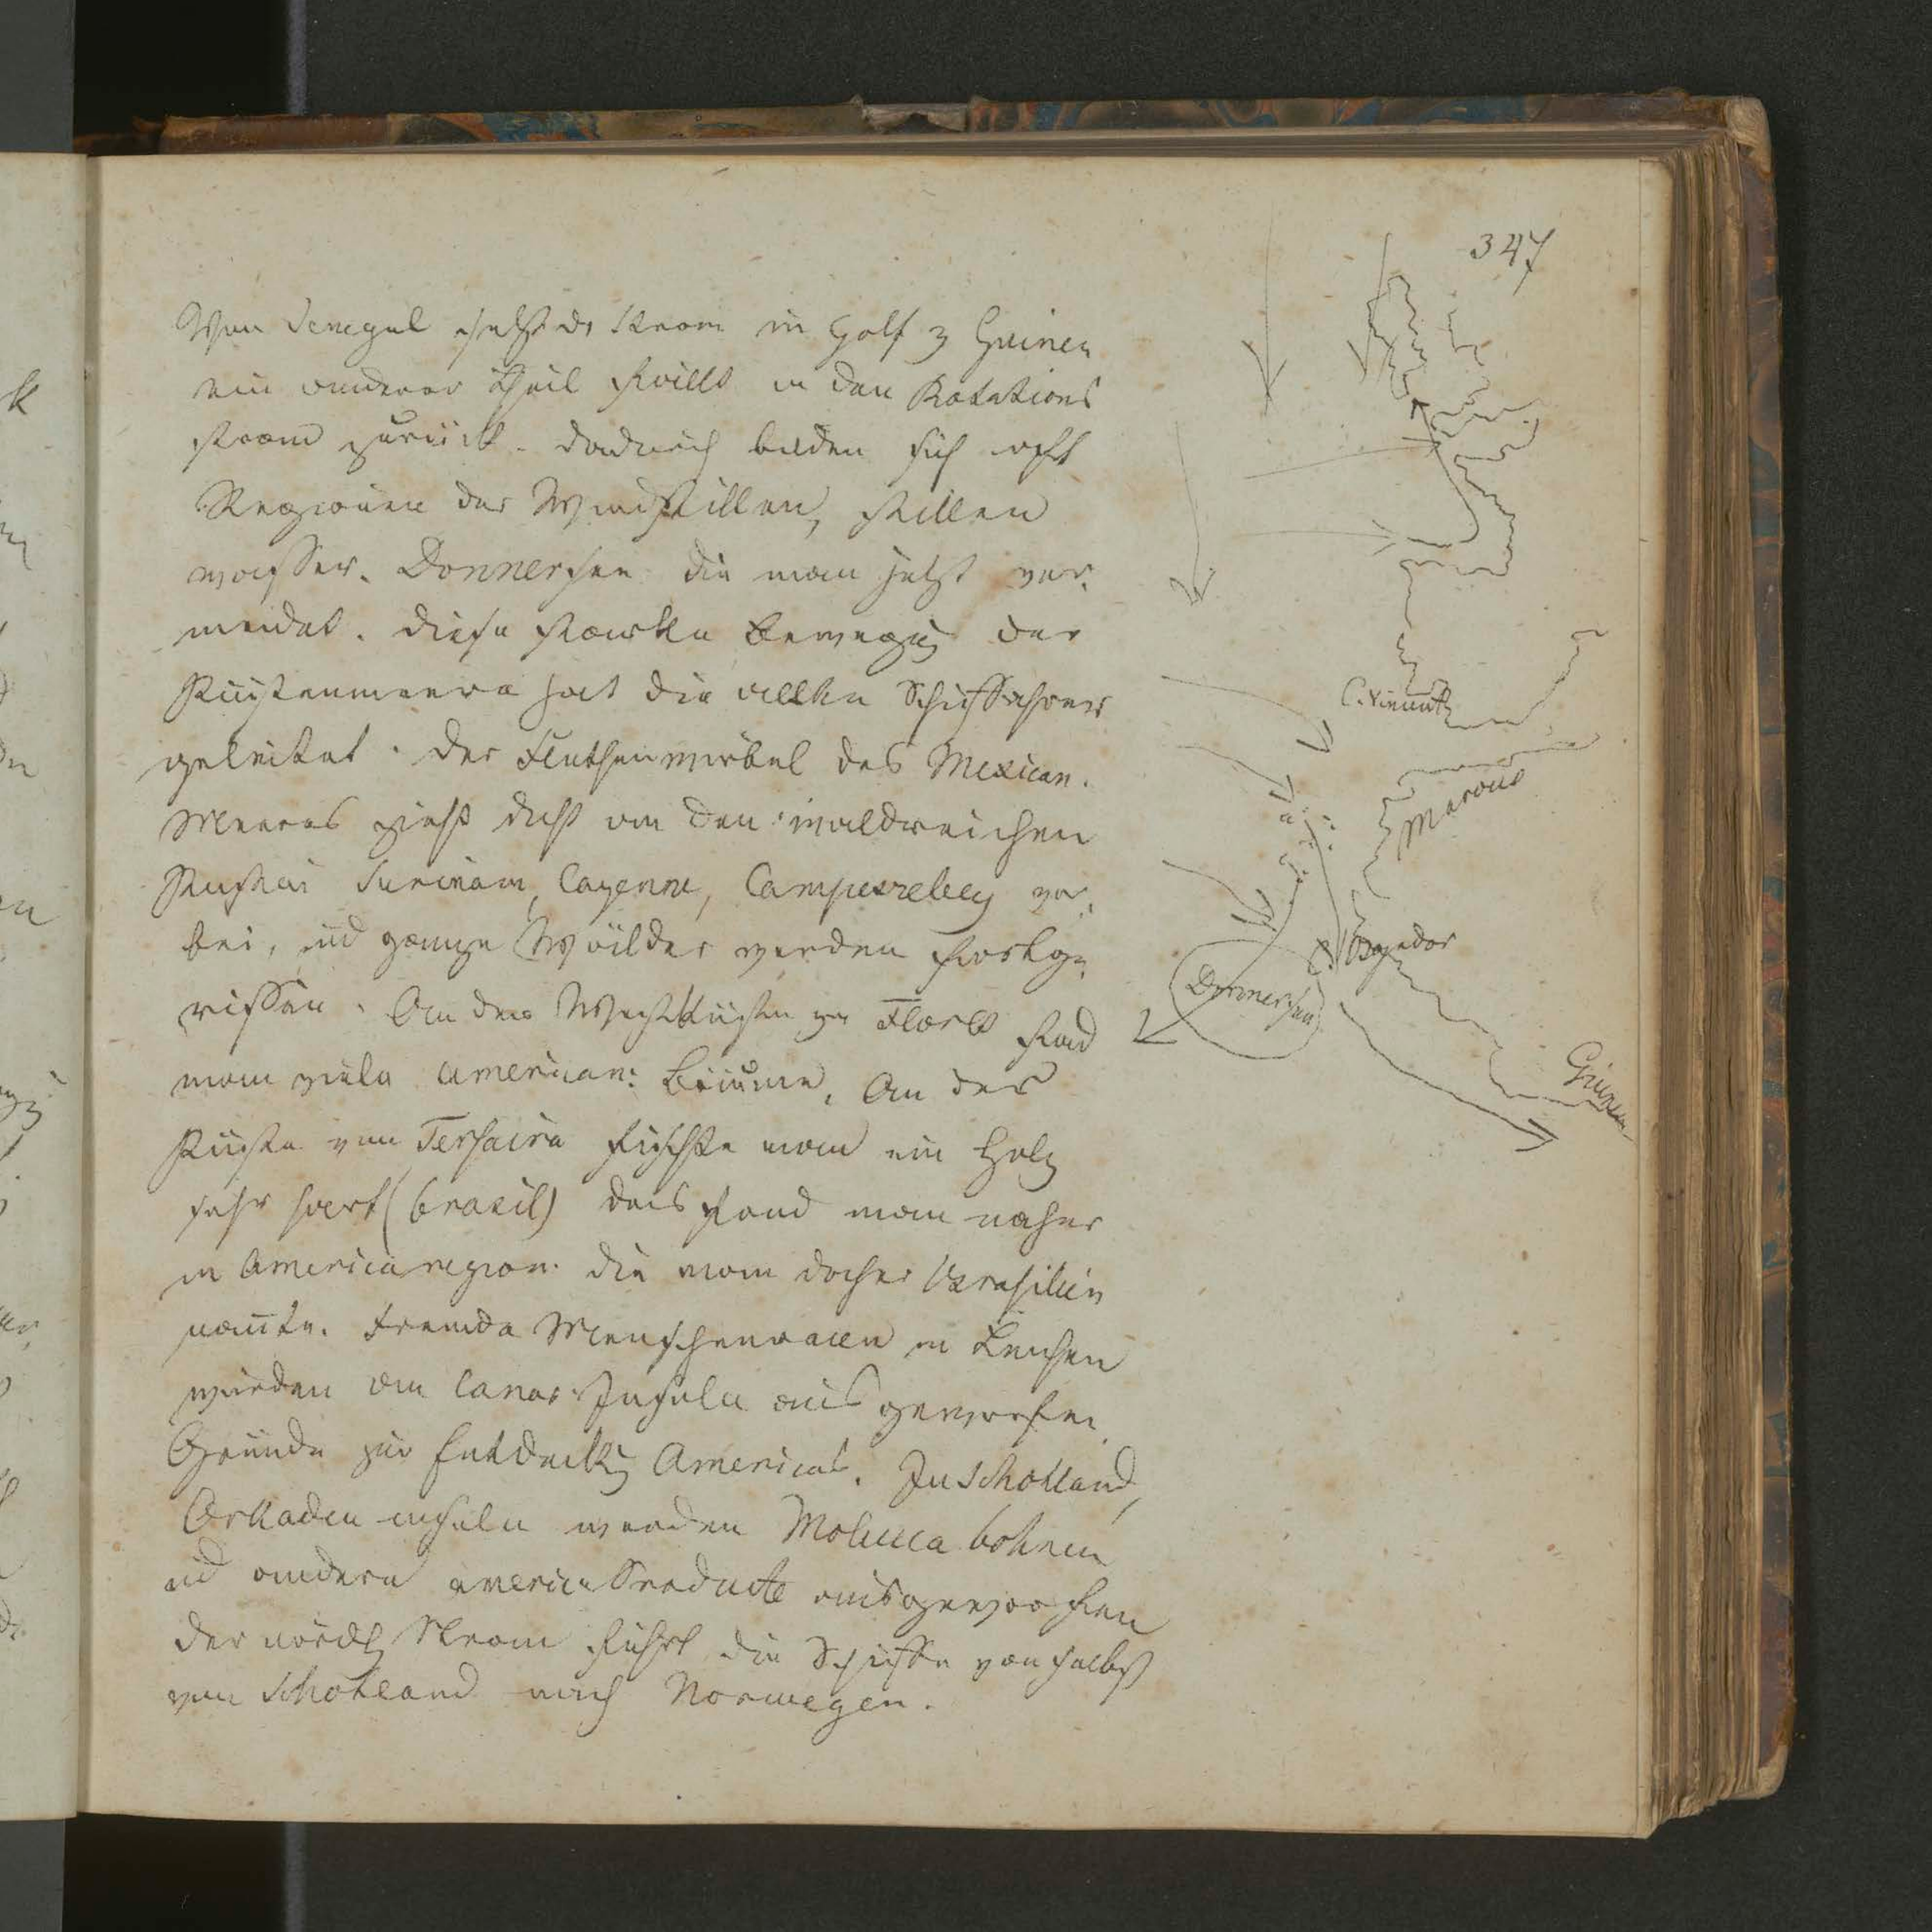 347
Von Senegal geht dr Strom in Golf z Guinea
ein anderer Theil kreist in den Rotations
strom zurück. dadurch bilden sich oft
Regionen der Windstillen, stillen
wasser. Donnersee die man jetzt ver-
meidet. diese starke Bewegūg der
Küstenmeere hat die alten Schifffahrer
geleitet. der Fluthenwirbel des Mexican.
Meeres zieht dicht an den waldreichen
Küsten Surinam, Cayenne, vor-
bei, ūd ganze Wälder werden fortge-
rissen. An der Westküste v Flores fand
man viele american: Bäume. An der
Küste von Terhaira fischte man ein Holz
sehr hart (brasil) das fand man naher
in America region. die man daher Brasilien
nañte. Fremde Menschenracen in Leichen
wurden an Canar Inseln aus geworfen.
Gründe zur Entdeckūg Americas. In Schottland,
Orkaden inseln werden Molucca bohnen
ūd andere america Producte ausgeworfen
der nördl Strom führt die Schiffe von selbst
von Schotland nach Norwegen.
C. Vincent
Marocco
Bogador
Donnersee
Guinea